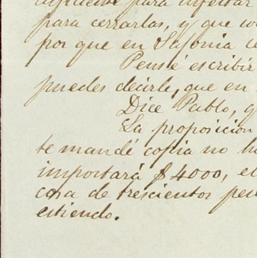 para cerrarlas, y que
por que en
Pensé escribir
puedes decirle, que en
Dice Pablo, q
La proposicion
te mandé copia no
importará $4000, e
cosa de trescientos